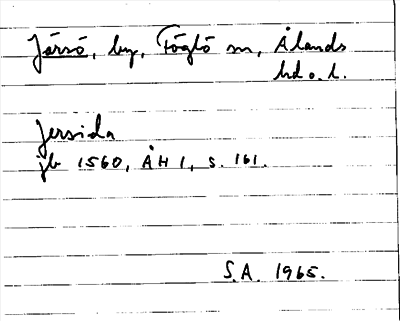 Järsö, by, Föglö sn, Ålands
hd o. l.
Jersida
jb 1560, ÅH 1, s. 161.
S.A. 1965.